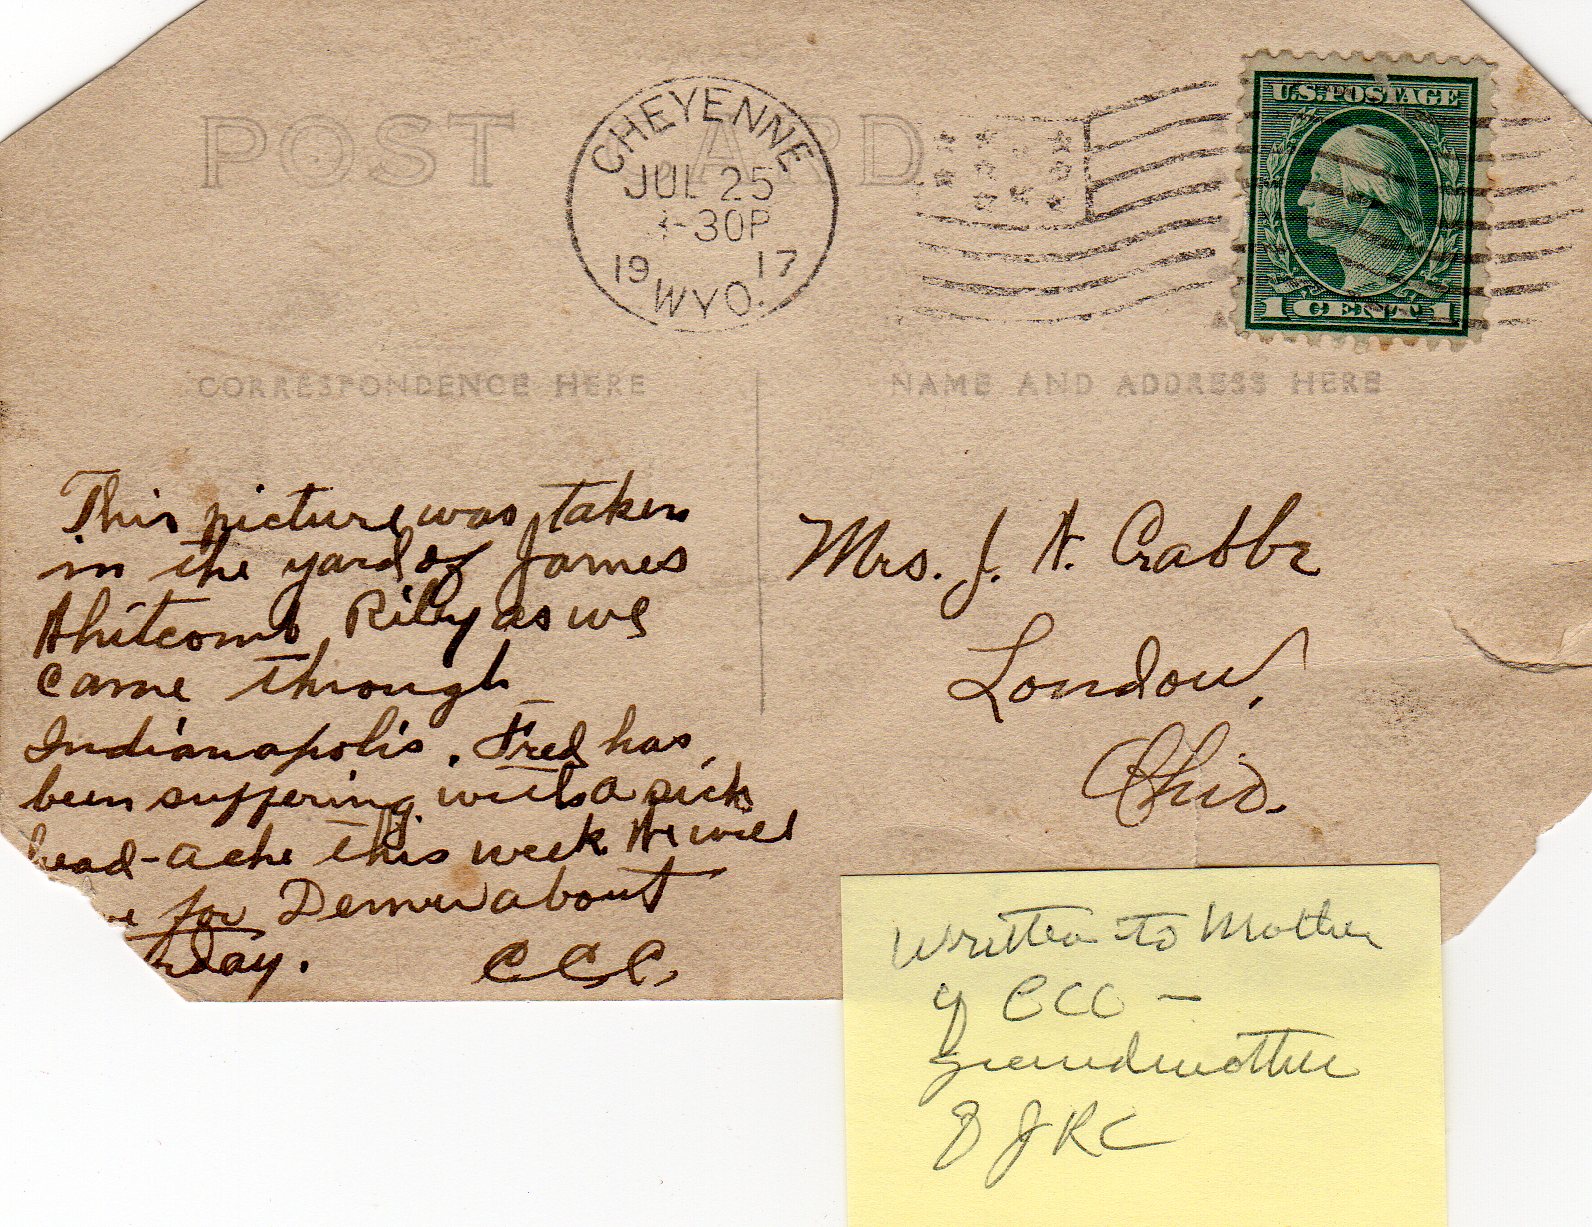 POST CARD
CHEYENNE
JUL 25
-30P
19 17
WYO.
U.S. POSTAGE
1 CENT 1
CORRESPONDENCE HERE
NAME AND ADDRESS HERE
This picture was taken
in the yard of James
Whitcomb Riley as we
came through
Indianapolis. Fred has
been suffering with a sick
head-ache this week He will
for Denver about
day.
CCC.
Mrs. J. N. Crabbe
London,
Ohio.
Written to Mother
of CCC —
Grandmother
of JRC